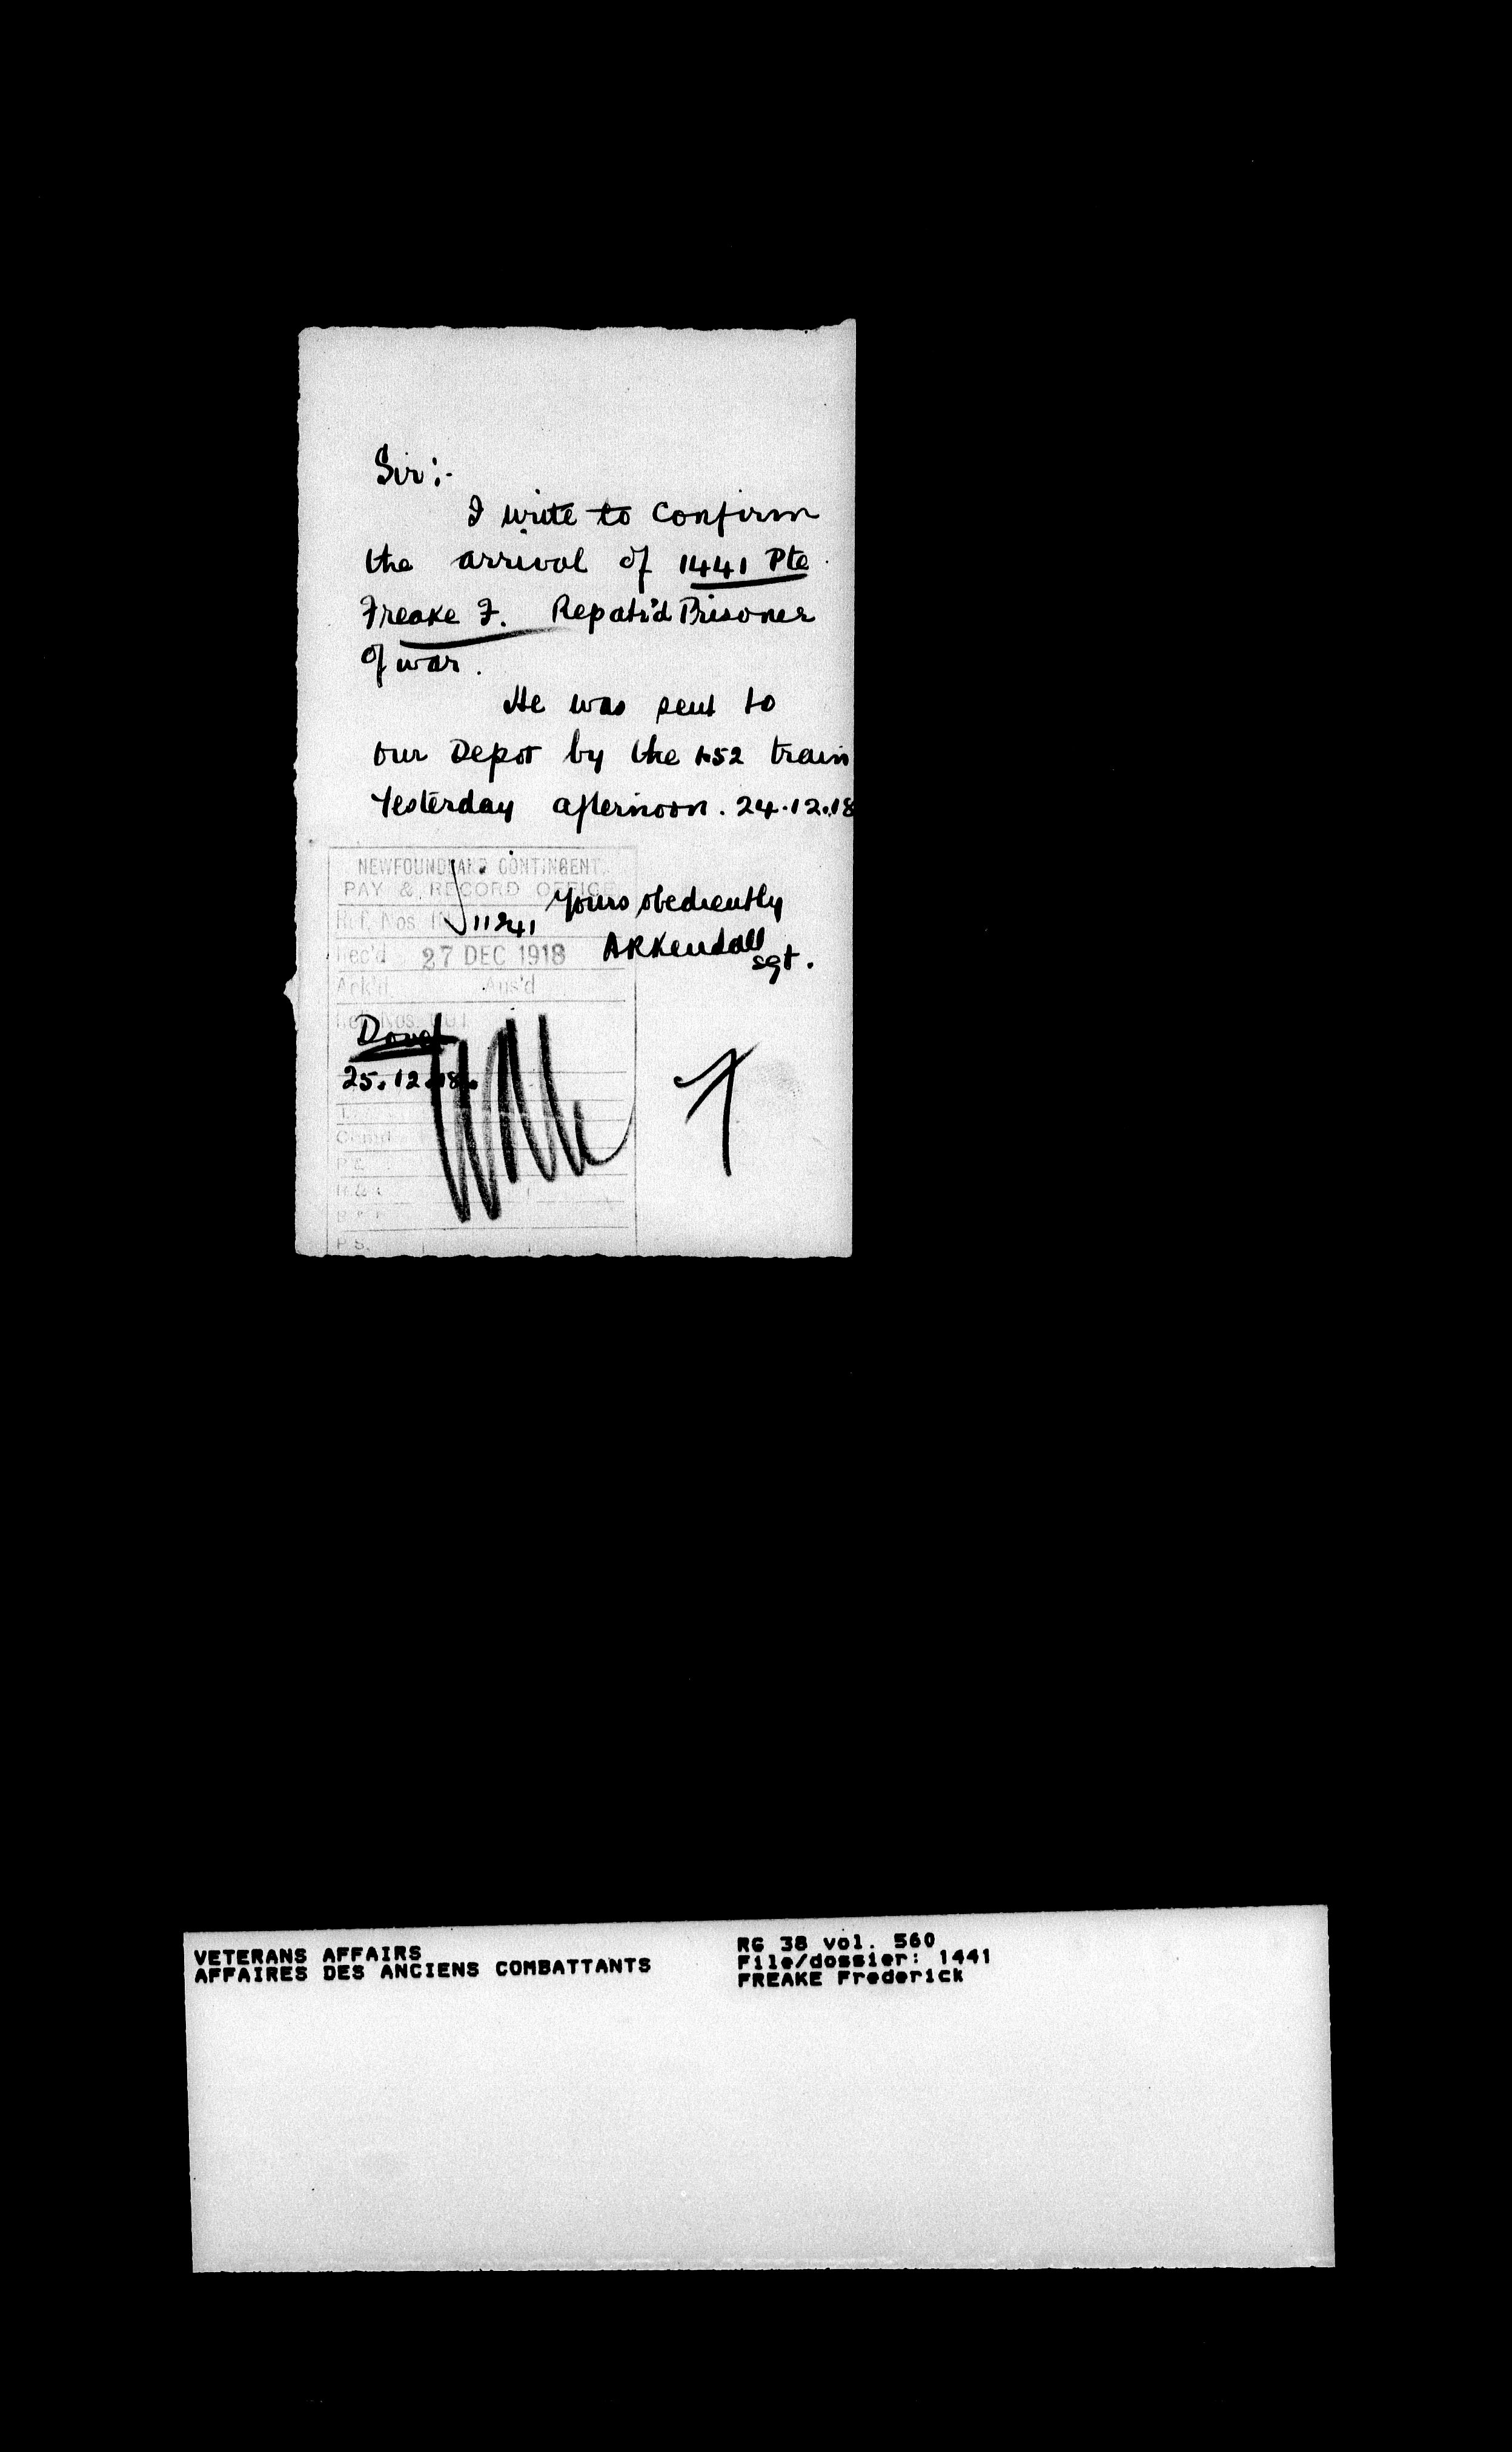 Sir:-
I write to Confirm
the arrival of 1441 Pte
Freake F. Repatr'd Prisoner
of war.
He was sent to
our Depot by the 1.52 train
Yesterday afternoon. 24.12.18
NEWFOUNDLAND CONTINGENT
PAY & RECORD OFFICE
Yours obediently
Ref. Nos. 11241
ARKendall
Sgt.
Rec'd 27 DEC 1918
Ack'd Ans'd
25.12.18.
Cmd
P &
B &
P S.
VETERANS AFFAIRS
AFFAIRES DES ANCIENS COMBATTANTS
RG 38 vol. 560
File/dossier: 1441
FREAKE Frederick